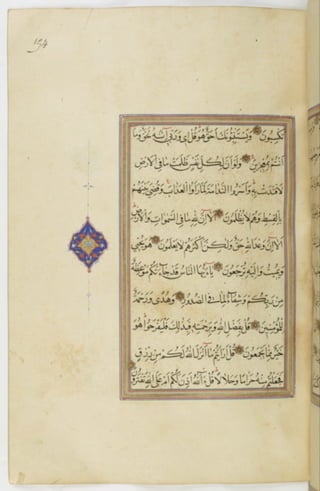 تَكْسِبُونَ وَيَسْتَنْبِئُونَكَ اَحَقٌّ هُوَ قُلْ اِى وَرَبِّى اِنَّهُ لَحَقٌّ وَمَا
اَنْتُمْ بِمُعْجِزِينَ وَلَوْ اَنَّ لِكُلِّ نَفْسٍ ظَلَمَتْ مَا فِى الْاَرْضِ
لَافْتَدَتْ بِهِ وَاَسَرُّوا النَّدَامَةَ لَمَّا رَاَوُا الْعَذَابَ وَقُضِىَ بَيْنَهُمْ
بِالْقِسْطِ وَهُمْ لَا يُظْلَمُونَ اَلَا اِنَّ لِلّٰهِ مَا فِى السَّمٰوَاتِ وَالْاَرْضِ
اَلَا اِنَّ وَعْدَ اللّٰهِ حَقٌّ وَلٰكِنَّ اَكْثَرَهُمْ لَا يَعْلَمُونَ هُوَ يُحْيِى
وَيُمِيتُ وَاِلَيْهِ تُرْجَعُونَ يَا اَيُّهَا النَّاسُ قَدْ جَاءَتْكُمْ مَوْعِظَةٌ
مِنْ رَبِّكُمْ وَشِفَاءٌ لِمَا فِى الصُّدُورِ وَهُدًى وَرَحْمَةٌ
لِلْمُؤْمِنِينَ قُلْ بِفَضْلِ اللّٰهِ وَبِرَحْمَتِهِ فَبِذٰلِكَ فَلْيَفْرَحُوا هُوَ
خَيْرٌ مِمَّا يَجْمَعُونَ قُلْ اَرَاَيْتُمْ مَا اَنْزَلَ اللّٰهُ لَكُمْ مِنْ رِزْقٍ
فَجَعَلْتُمْ مِنْهُ حَرَامًا وَحَلَالًا قُلْ آللّٰهُ اَذِنَ لَكُمْ اَمْ عَلَى اللّٰهِ تَفْتَرُونَ